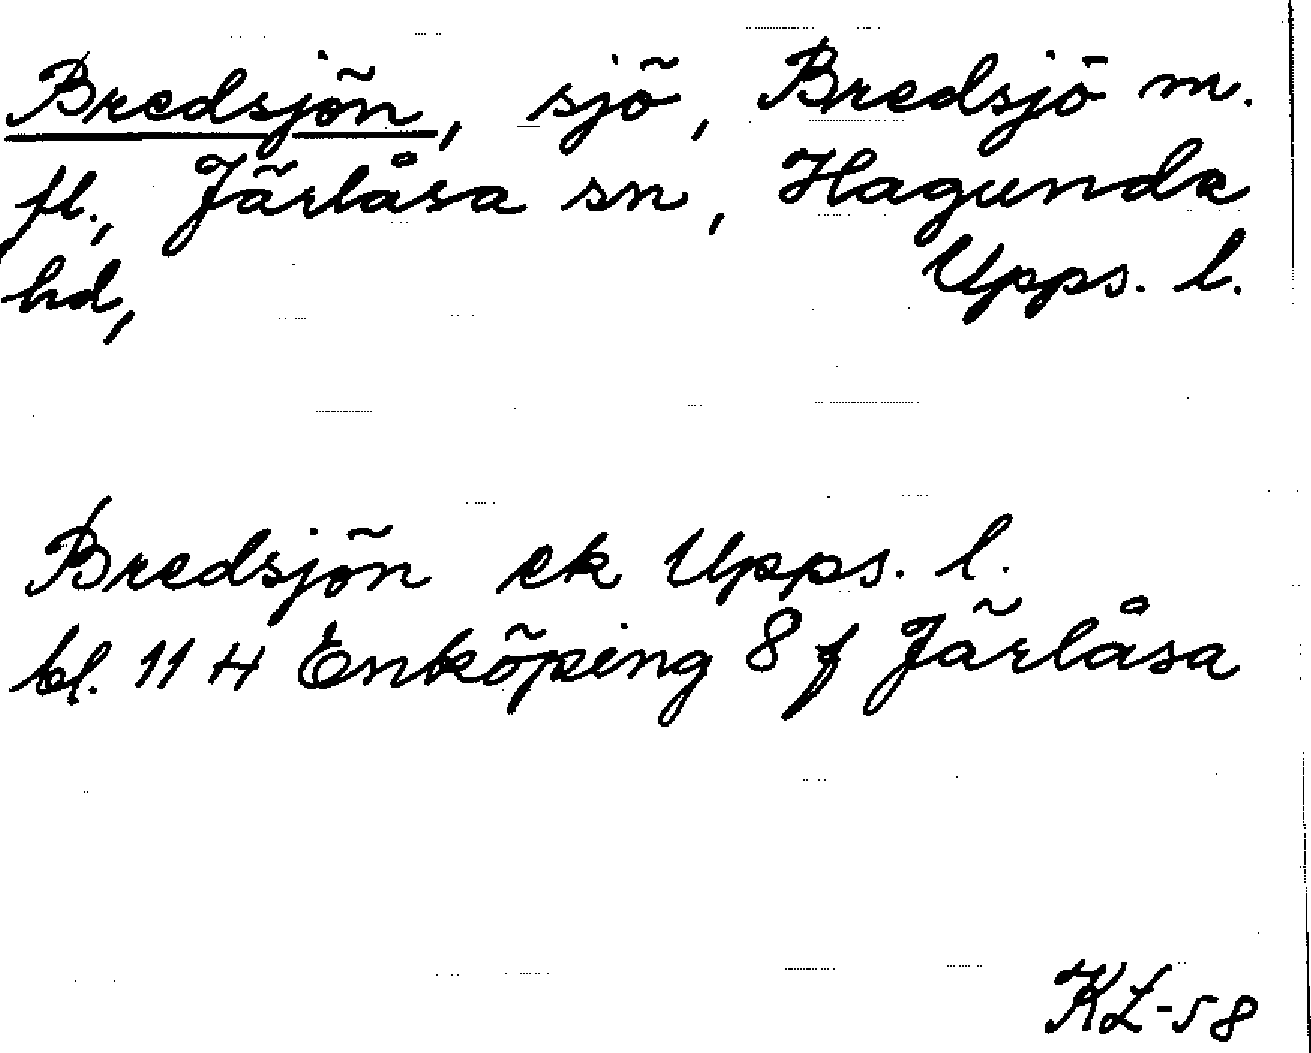 Bredsjön, sjö, Bredsjö m.
fl., Järlåsa sn, Hagunda
hd, Upps. l.
Bredsjön ek Upps. l.
bl. 11 H Enköping 8 f Järlåsa
KL-58